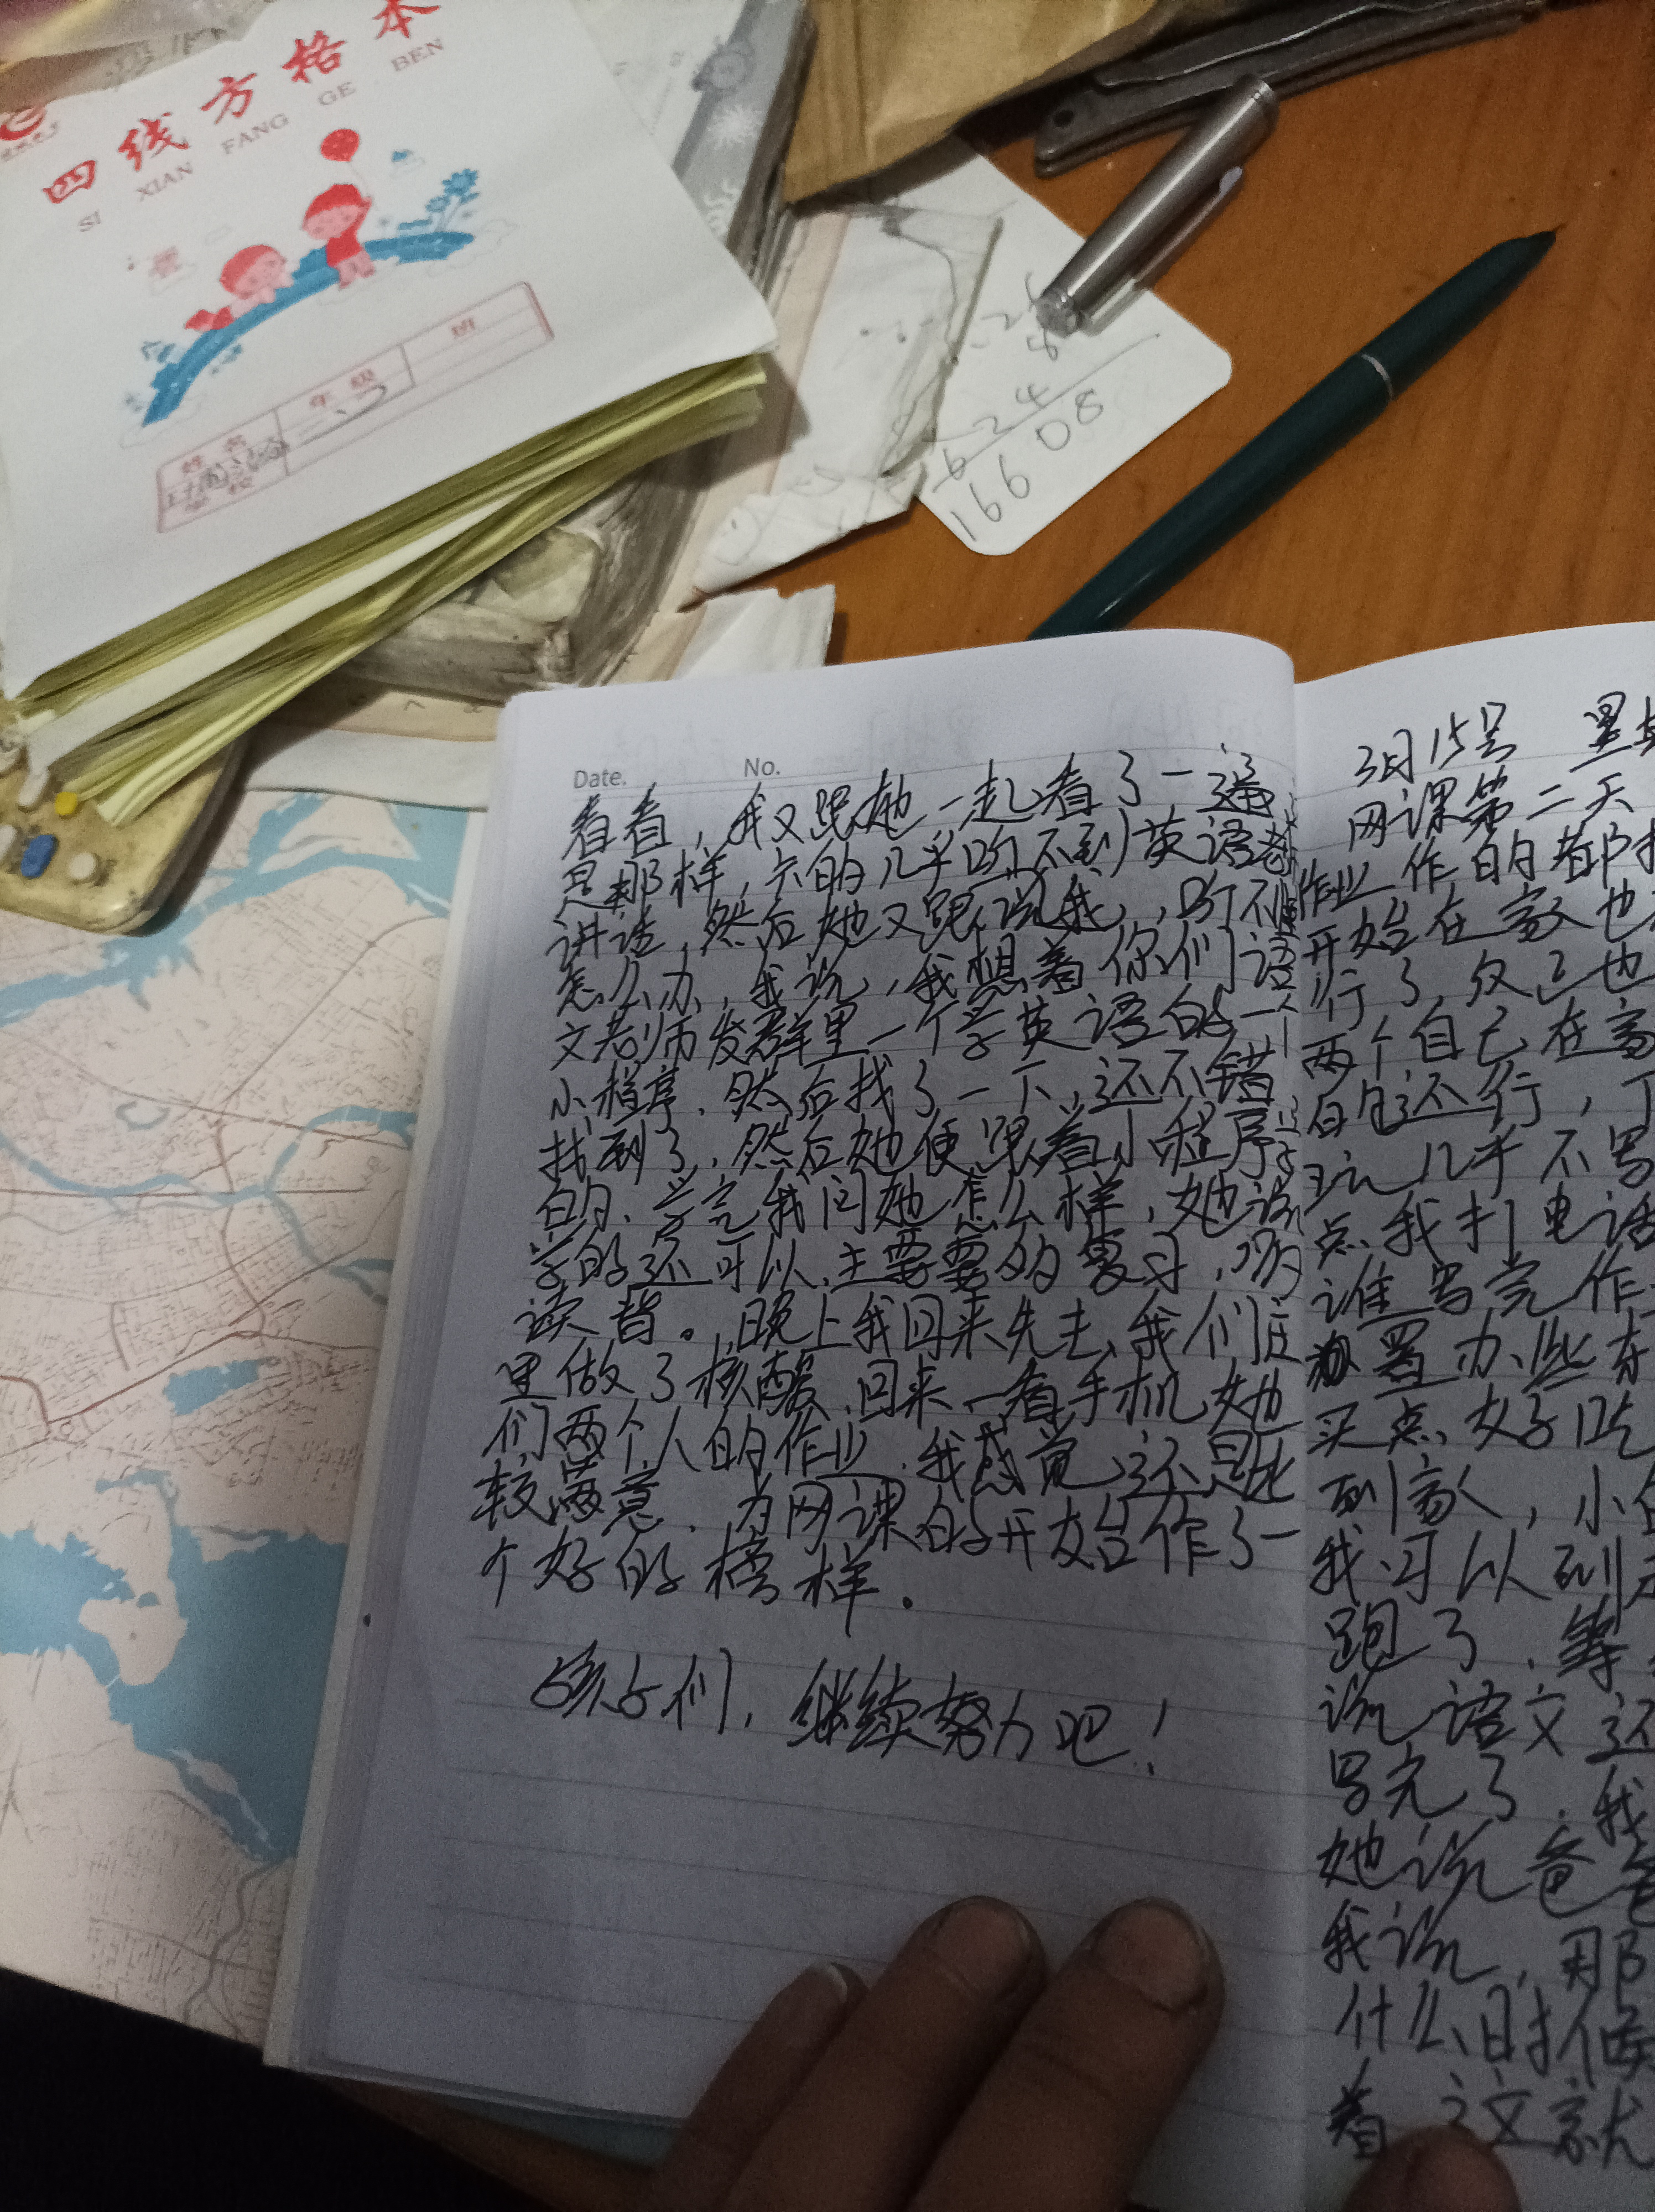 四线方格本
SI XIAN FANG GE BEN
姓名
年级
班
学校
二
8
6248
16608
Date. No.
看看，我又跟她一起看了一遍
是那样，六的几乎听不到英语老
讲话，然后她又跟我说，听不
怎么办，我说，我想着你们语
文老师发群里一个学英语的一个
小程序．然后找了一下，还不错
找到了，然后她便跟着小程序学
的．学完我问她怎么样，她说
学的还可以．主要要多的复习，听
读背。晚上我回来先去我们庄
里做了核酸．回来一看手机她
们两个人的作业．我感觉还是比
较满意．为网课的开始作了一
个好的榜样．
孩子们，继续努力吧！
3月15号 星期
网课第二天
作业作的都
开始在家也
行了，反正也
两个自己在家
白的还行，丁
玩几乎不写
点我打电话
谁写完作
置办些东
买点好吃
到家，小
我可以到
跑了．等
说语文还
写完了．我
她说爸爸
我说，那
什么时候
着 这就